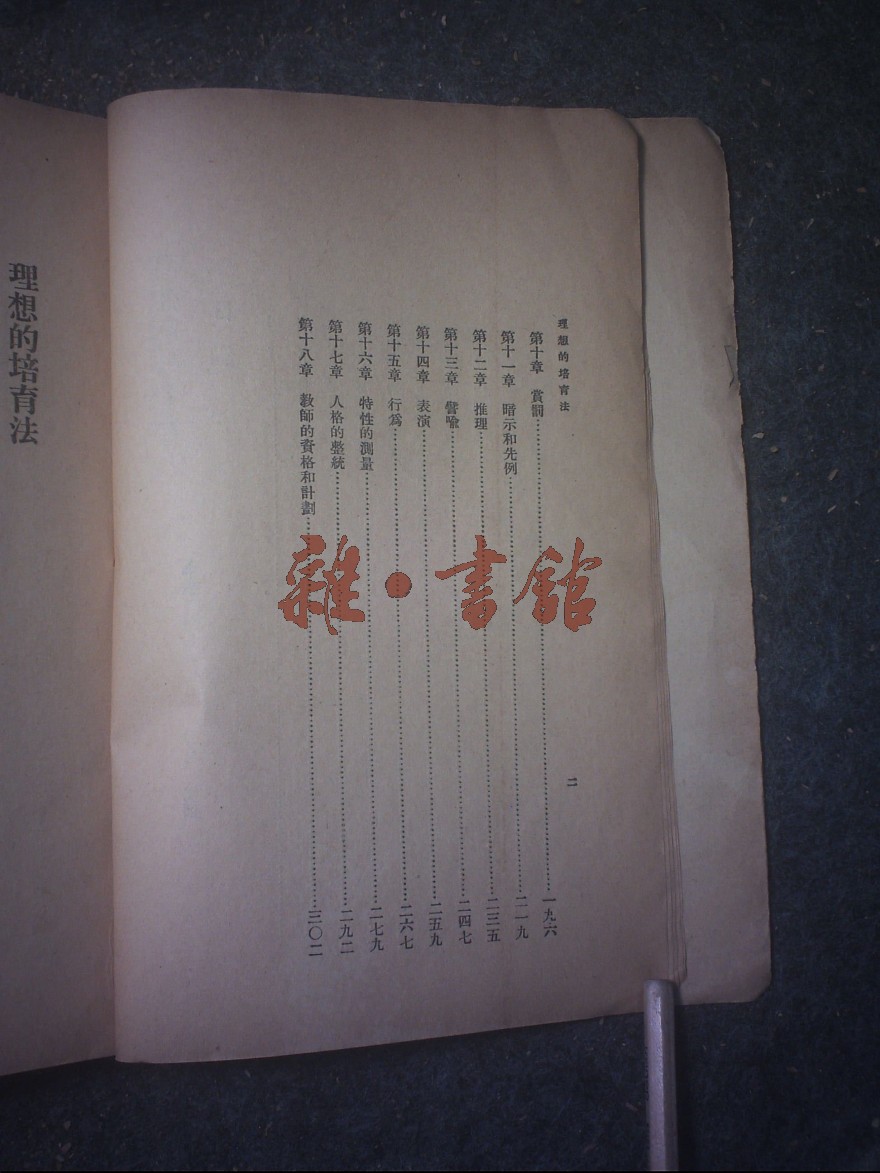 理想的培育法
第十章　賞罰……一九六
第十一章　暗示和先例……二一九
第十二章　推理……二三五
第十三章　譬喩……二四七
第十四章　表演……二五九
第十五章　行爲……二六七
第十六章　特性的測量……二七九
第十七章　人格的整統……二九二
第十八章　敎師的資格和計劃……三〇二
二
理想的培育法
雜·書館